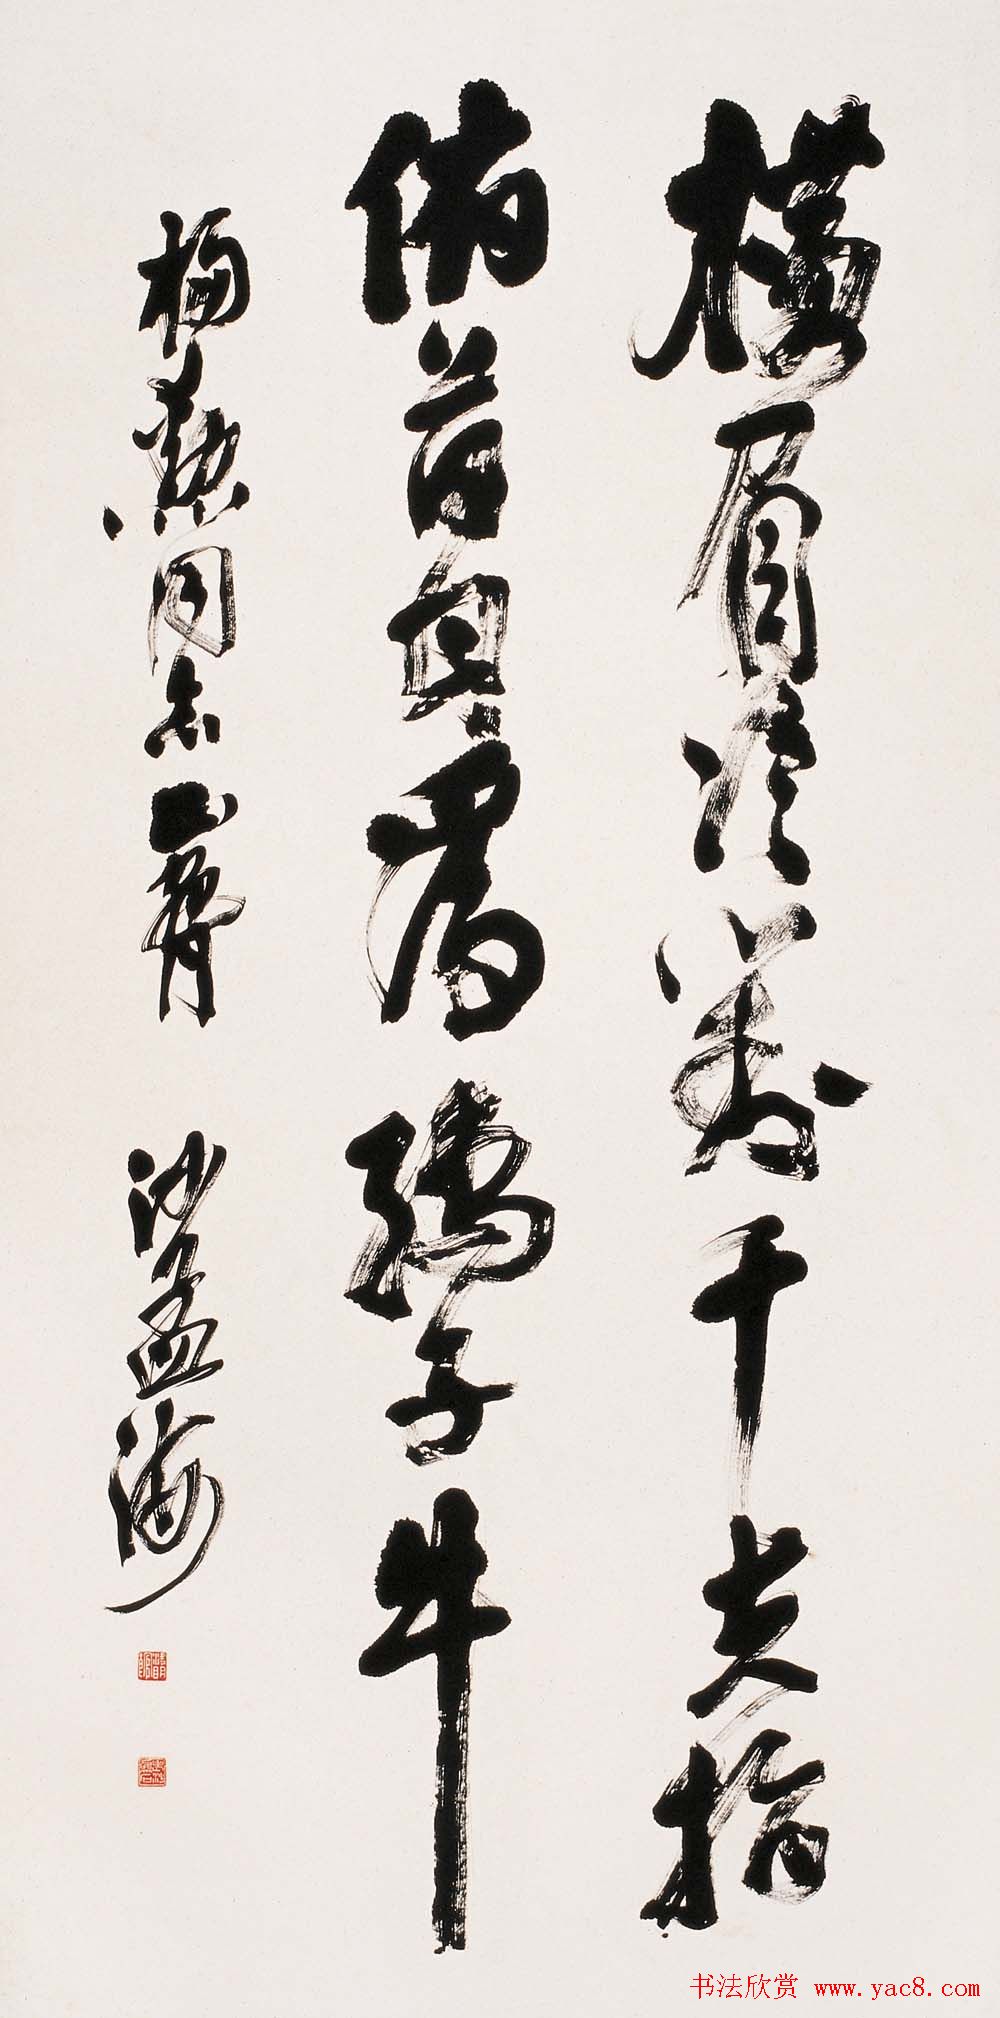 橫眉冷對千夫指
俯首甘為孺子牛
同志
沙孟海
书法欣赏 www.yac8.com